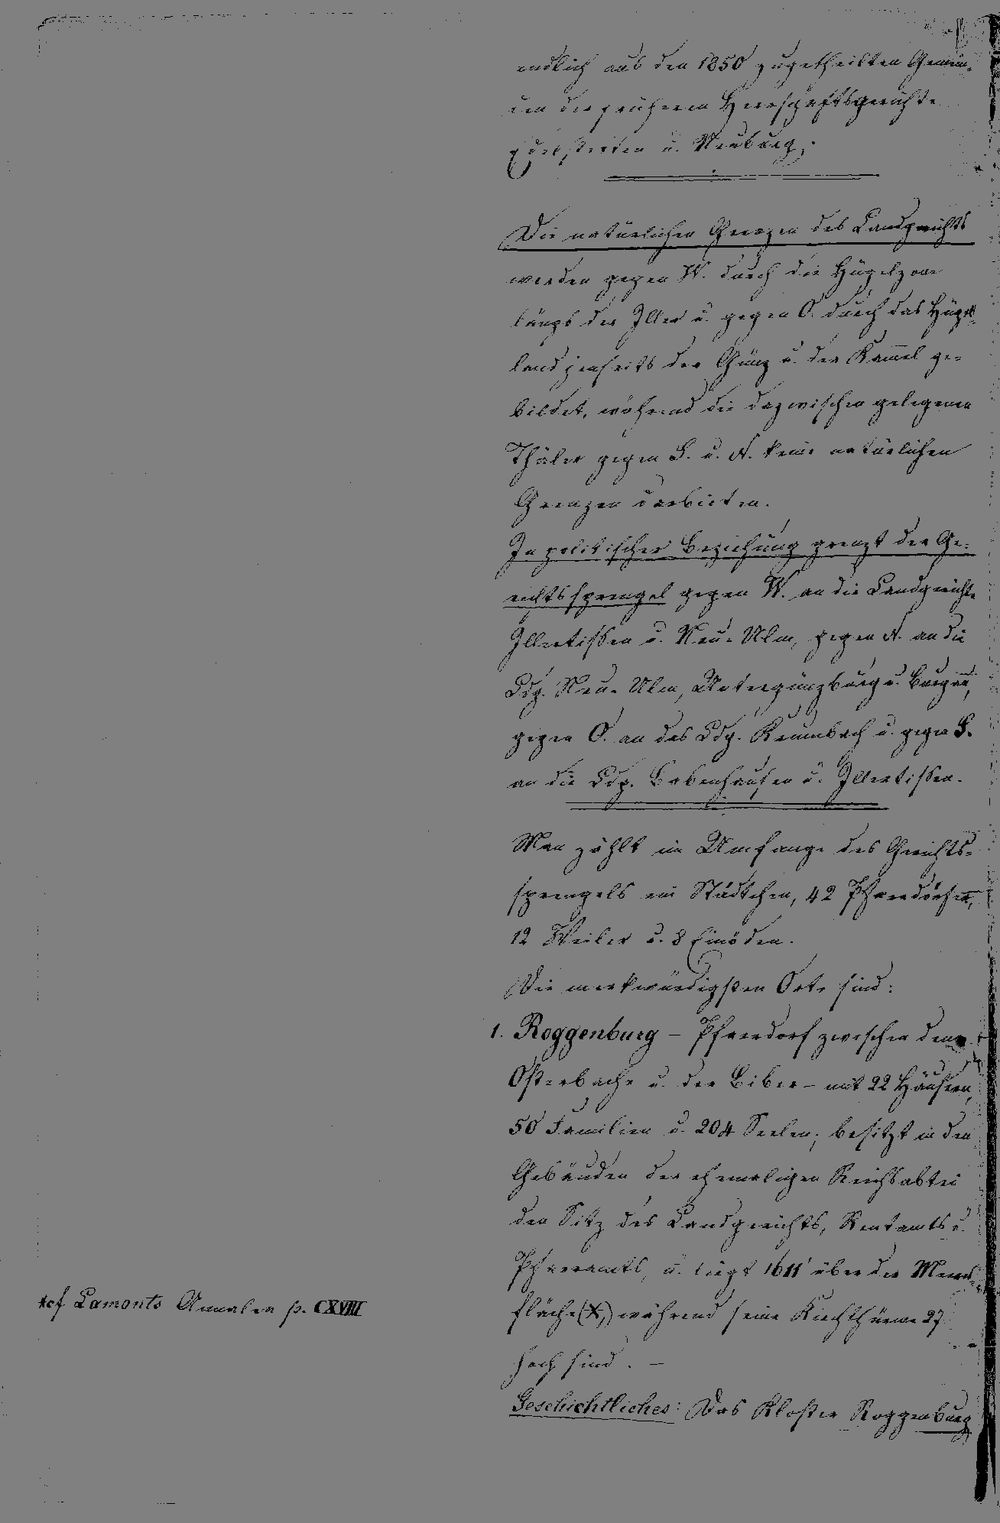 endlich aus den 1850 zugetheilten Gemein-
den der früheren Herrschaftsgerichte
Edelstetten u. Neuburg.
Die natürlichen Grenzen des Landgerichts
werden gegen W. durch die Hügelzone
längs der Iller u. gegen O. durch das Hügel-
land jenseits der Günz u. der Kam̄el ge-
bildet, während die dazwischen gelegenen
Thäler gegen S. u. N. keine natürlichen
Grenzen darbieten.
In politischer Beziehung grenzt der Ge-
richtssprengel gegen W. an die Landgerichte
Illertissen u. Neu-Ulm, gegen N. an die
Ldg. Neu-Ulm, Untergünzburg u. Burgau,
gegen O. an das Ldg. Krumbach u. gegen S.
an die Ldg. Babenhausen u. Illertissen.
Man zählt im Umfange des Gerichts-
sprengels ein Städtchen, 42 Pfarrdörfer,
12 Weiler u. 8 Einöden.
Die merkwürdigsten Orte sind:
1. Roggenburg – Pfarrdorf zwischen dem
Osterbache u. der Biber – mit 22 Häusern,
50 Familien u. 204 Seelen; besitzt in den
Gebäuden der ehemaligen Reichsabtei
den Sitz des Landgerichts, Rentamts u.
Pfarramts, u. liegt 1611' über der Meeres-
fläche (X,) während seine Kirchthürme 27
hoch sind. –
Geschichtliches: Das Kloster Roggenburg
*cf Lamonts Annalen p. CXVIII